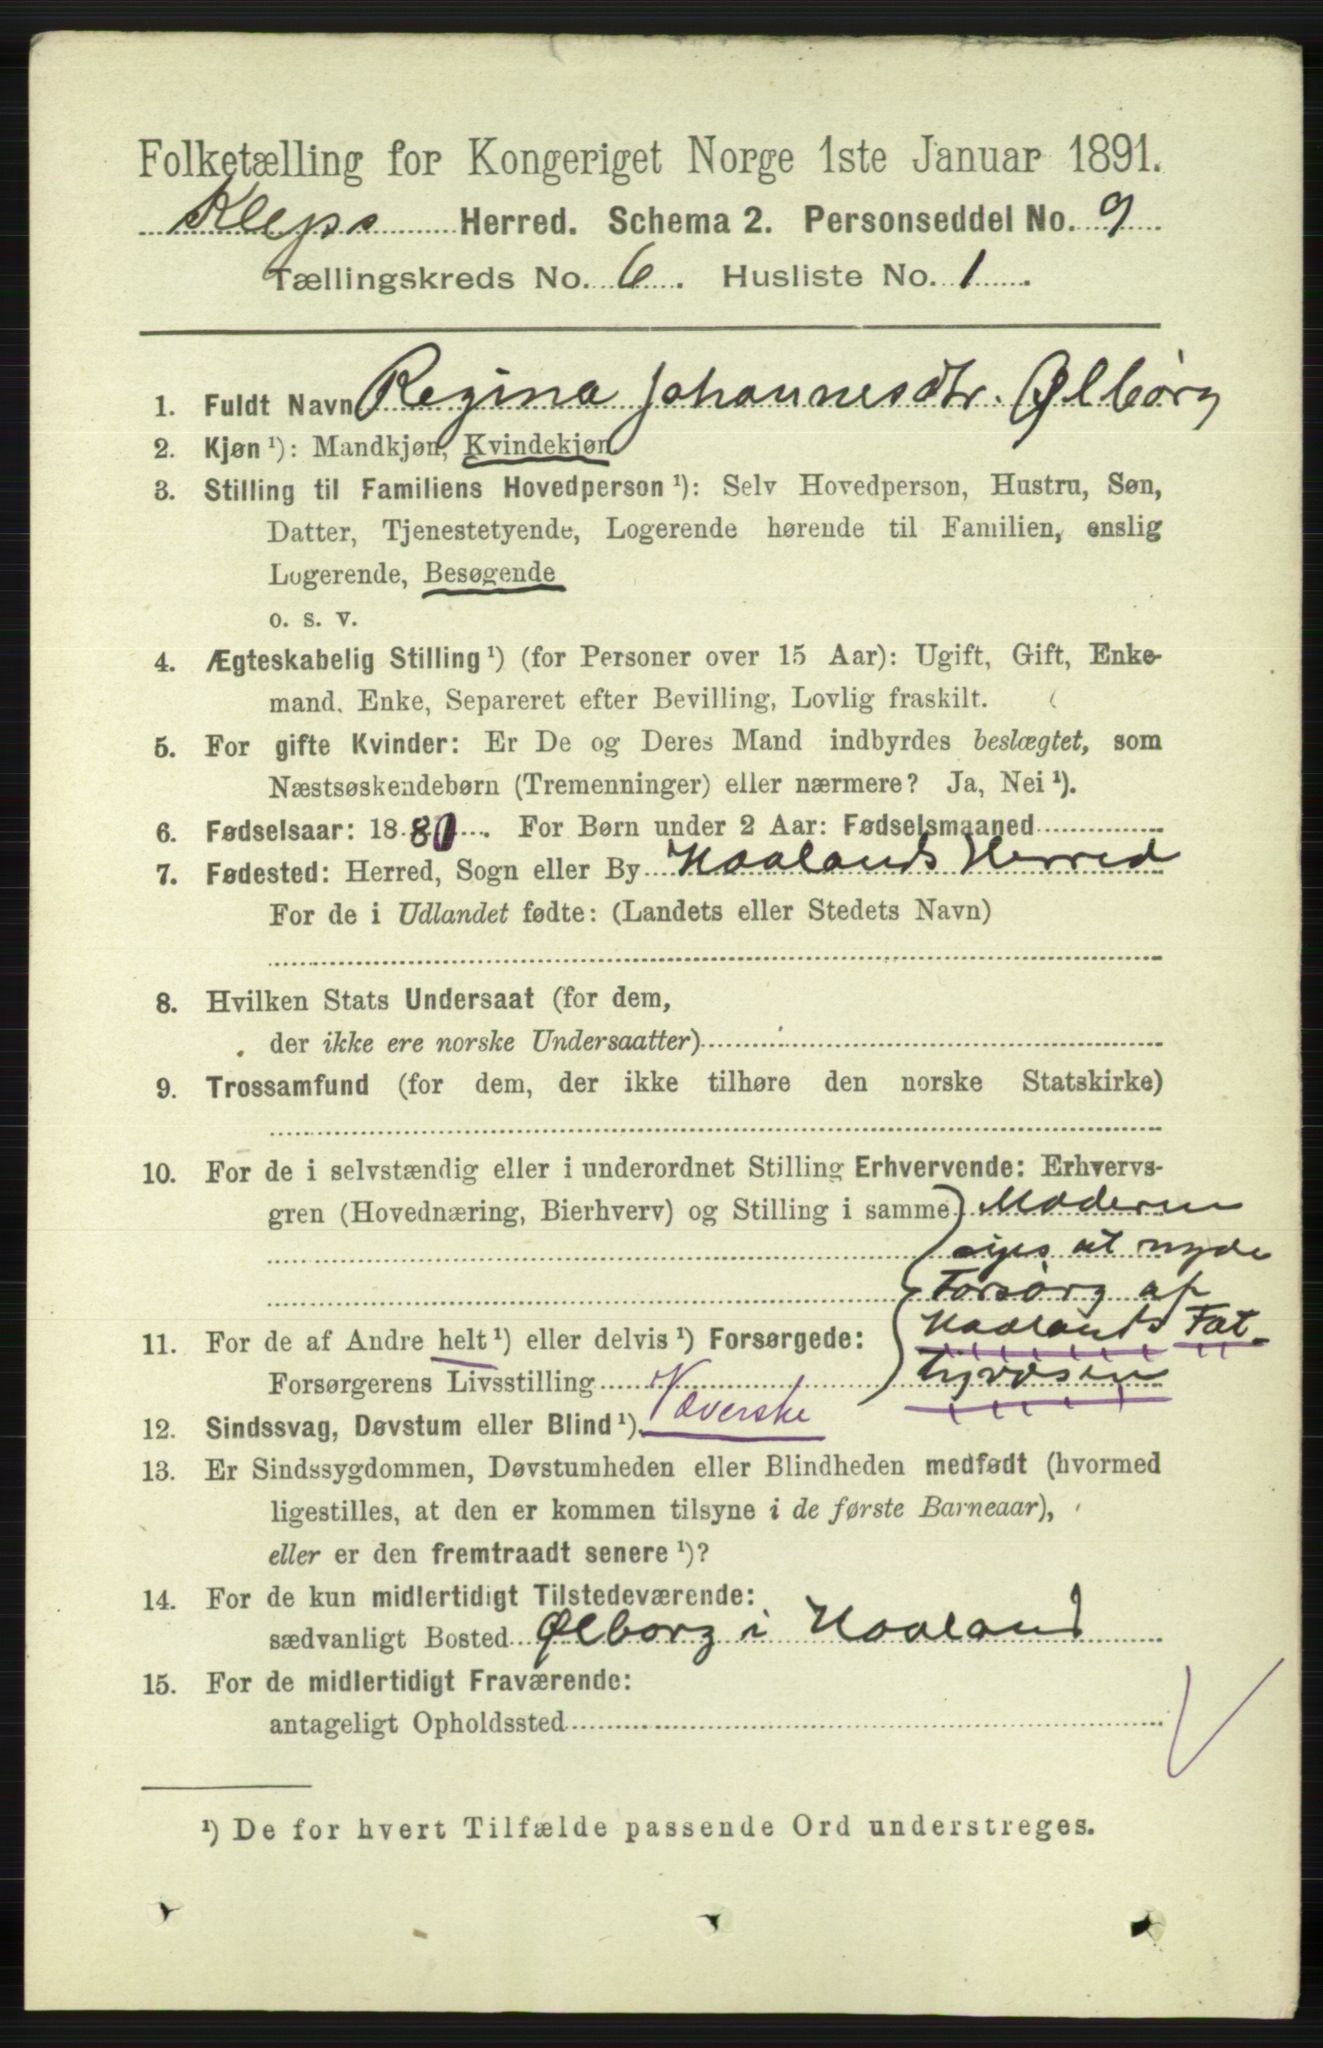 Folketælling for Kongeriget Norge 1ste Januar 1891.
Kleps Herred. Schema 2. Personseddel No. 9
Tællingskreds No. 6. Husliste No. 1.
1. Fuldt Navn Regina Johannesdtr. Ølborg
2. Kjøn ¹): Mandkjøn, Kvindekjøn
3. Stilling til Familiens Hovedperson ¹): Selv Hovedperson, Hustru, Søn,
Datter, Tjenestetyende, Logerende hørende til Familien, enslig
Logerende, Besøgende
o. s. v.
4. Ægteskabelig Stilling ¹) (for Personer over 15 Aar): Ugift, Gift, Enke-
mand. Enke, Separeret efter Bevilling, Lovlig fraskilt.
5. For gifte Kvinder: Er De og Deres Mand indbyrdes beslægtet, som
Næstsøskendebørn (Tremenninger) eller nærmere? Ja, Nei ¹).
6. Fødselsaar: 1880. For Børn under 2 Aar: Fødselsmaaned
7. Fødested: Herred, Sogn eller By Haalands Herred
For de i Udlandet fødte: (Landets eller Stedets Navn)
8. Hvilken Stats Undersaat (for dem,
der ikke ere norske Undersaatter)
9. Trossamfund (for dem, der ikke tilhøre den norske Statskirke)
10. For de i selvstændig eller i underordnet Stilling Erhvervende: Erhvervs-
gren (Hovednæring, Bierhverv) og Stilling i samme Moderen
siges at nyde
Forsørg af
11. For de af Andre helt ¹) eller delvis ¹) Forsørgede: Haalands Fat-
Forsørgerens Livsstilling Væverske
12. Sindssvag, Døvstum eller Blind ¹).
13. Er Sindssygdommen, Døvstumheden eller Blindheden medfødt (hvormed
ligestilles, at den er kommen tilsyne i de første Barneaar),
eller er den fremtraadt senere ¹)?
14. For de kun midlertidigt Tilstedeværende:
sædvanligt Bosted Ølborg i Haaland
15. For de midlertidigt Fraværende:
antageligt Opholdssted
¹) De for hvert Tilfælde passende Ord understreges.